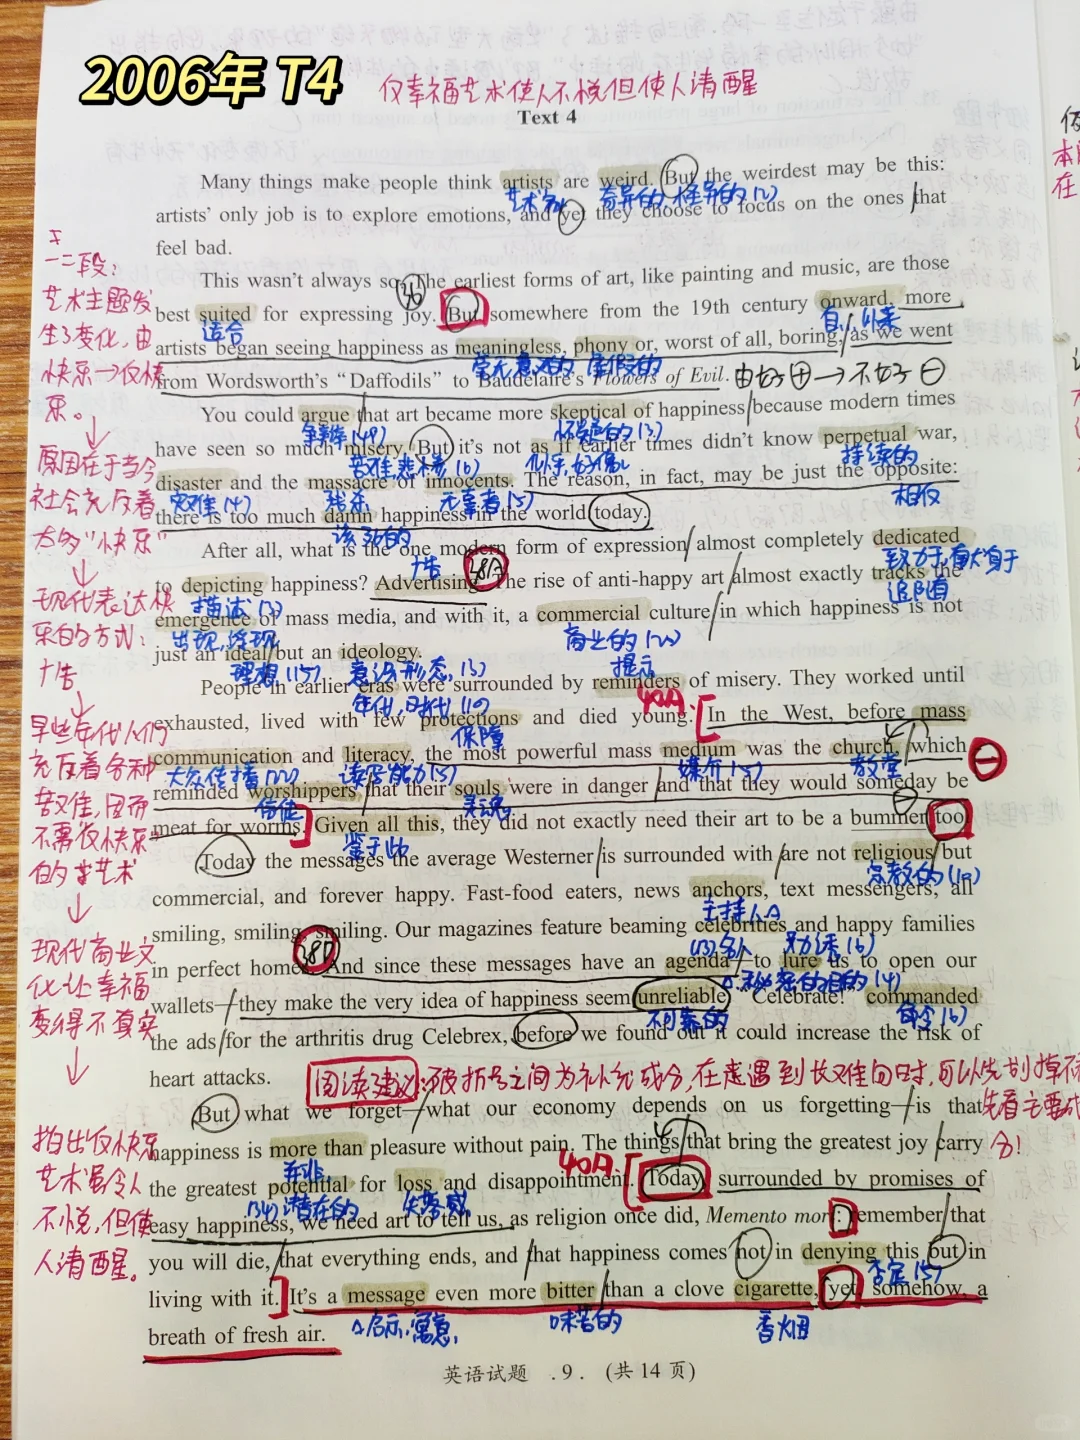 2006年 T4
仅幸福艺术使人不悦但使人清醒
Text 4
Many things make people think artists are weird. But the weirdest may be this:
艺术家 奇异的, 怪异的(2)
artists' only job is to explore emotions, and yet they choose to focus on the ones that
feel bad.
This wasn't always so. The earliest forms of art, like painting and music, are those
best suited for expressing joy. But somewhere from the 19th century onward, more
适合
artists began seeing happiness as meaningless, phony or, worst of all, boring, as we went
毫无意义的 虚假的
from Wordsworth's "Daffodils" to Baudelaire's Flowers of Evil. 由好⊕→不好⊖
You could argue that art became more skeptical of happiness because modern times
争辩(49) 怀疑的(3)
have seen so much misery. But it's not as if earlier times didn't know perpetual war,
苦难,悲惨(6) 似乎,好像 持续的
disaster and the massacre of innocents. The reason, in fact, may be just the opposite:
灾难(4) 残杀 无辜者(5) 相反
there is too much damn happiness in the world today.
该死的
After all, what is the one modern form of expression almost completely dedicated
广告 致力于,献身于
to depicting happiness? Advertising. The rise of anti-happy art almost exactly tracks the
38A
描述(3) 追随
emergence of mass media, and with it, a commercial culture in which happiness is not
出现,浮现 商业的(22)
just an ideal but an ideology.
理想(15) 意识形态(3) 提示
People in earlier eras were surrounded by reminders of misery. They worked until
年代,时代(10) 40A
exhausted, lived with few protections and died young. In the West, before mass
保障
communication and literacy, the most powerful mass medium was the church, which
大众传播 读写能力(5) 媒介(5) 教堂
reminded worshippers that their souls were in danger and that they would someday be
信徒 灵魂
meat for worms. Given all this, they did not exactly need their art to be a bummer too.
鉴于此
Today the messages the average Westerner is surrounded with are not religious but
宗教的(19)
commercial, and forever happy. Fast-food eaters, news anchors, text messengers, all
主持人
smiling, smiling, smiling. Our magazines feature beaming celebrities and happy families
38D
名人 引诱(6)
in perfect homes. And since these messages have an agenda—to lure us to open our
秘密的目的(4)
wallets—they make the very idea of happiness seem unreliable. "Celebrate!" commanded
不可靠的 命令(6)
the ads for the arthritis drug Celebrex, before we found out it could increase the risk of
heart attacks.
阅读建议:破折号之间为补充成分,在遇到长难句时,可以先划掉
先看主要成分!
But what we forget—what our economy depends on us forgetting—is that
happiness is more than pleasure without pain. The things that bring the greatest joy carry
并非 40A
the greatest potential for loss and disappointment. Today, surrounded by promises of
(34)潜在的 失落感
easy happiness, we need art to tell us, as religion once did, Memento mori: remember that
you will die, that everything ends, and that happiness comes not in denying this but in
否定(5)
living with it. It's a message even more bitter than a clove cigarette, yet, somehow, a
启示,寓意 味苦的 香烟
breath of fresh air.
英语试题 . 9 . (共 14 页)
一二段:
艺术主题发
生了变化,由
快乐→仅快
乐。
原因在于当今
社会充斥着
太多"快乐"
现代表达快
乐的方式:
广告
早些年代人们
充斥着各种
苦难,因而
不需仅快乐
的艺术
现代商业文
化让幸福
变得不真实
指出仅快乐
艺术虽令人
不悦,但使
人清醒。